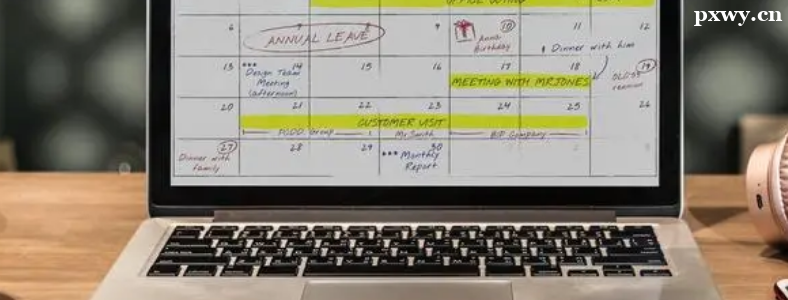 pxwy.cn
OFFICE OUTING
6 7 8 9 10 11 12
ANNUAL LEAVE
Anna
Birthday
! Dinner with him
13 14 15 16 17 18 19
*** Design Team
Meeting
(afternoon)
MEETING WITH MR JONES
reunion
20 21 22 23 24 25 26
CUSTOMER VISIT
Group
Mr Smith
Company
27 28 29 30
Dinner with
family
*** Monthly
Report